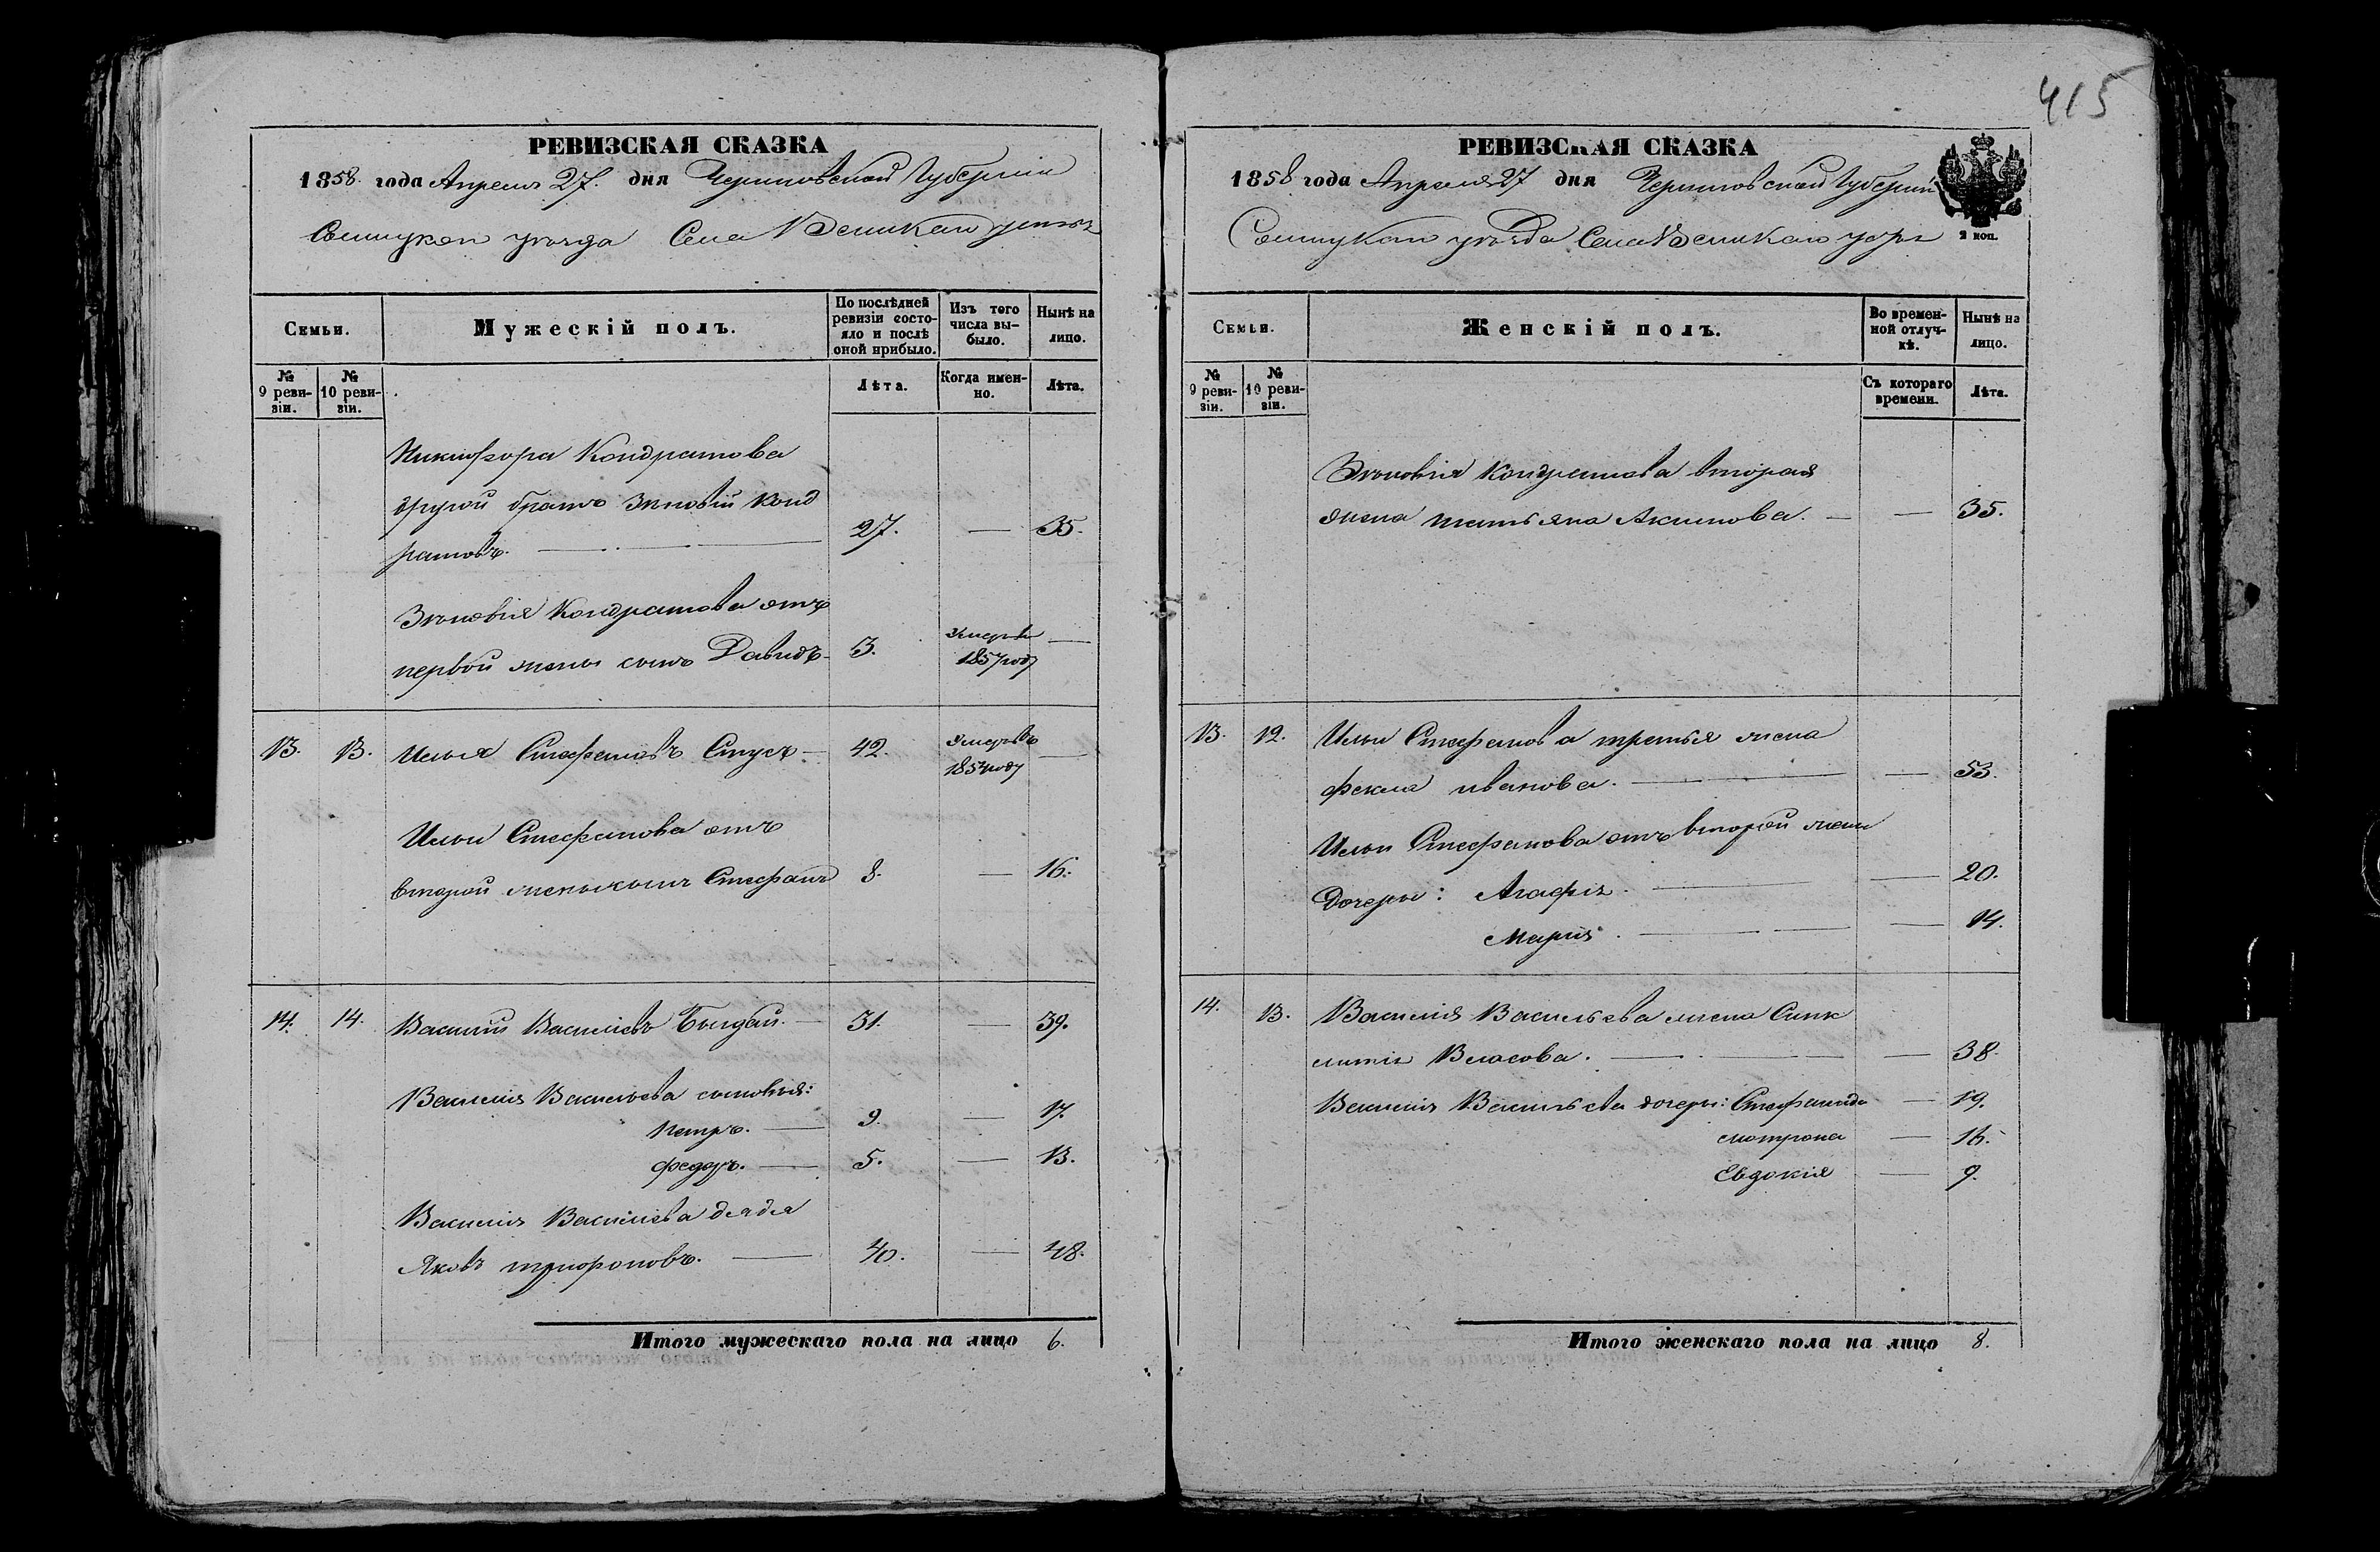 415
РЕВИЗСКАЯ СКАЗКА
1858. года Апреля 27. дня Черниговской Губерніи
уѣзда Села Великой
Семьи.
Мужескій полъ.
По послѣдней ревизіи состояло и послѣ оной прибыло.
Изъ того числа выбыло.
Нынѣ на лицо.
№ 9 ревизіи.
№ 10 ревизіи.
Лѣта.
Когда именно.
Лѣта.
Никифора Кондратова
другой братъ Зѣновій Конд
ратовъ. 27. — 35.
Зѣновія Кондратова отъ
первой жены сынъ Давидъ 3. Умеръ въ 1857 году —
13. 13. Илья Стефановъ Стусъ 42. Умеръ въ году —
Ильи Стефанова отъ
второй жены сынъ Стефанъ 8. — 16.
14. 14. Василій Васильевъ 31. — 39.
Василія Васильева сыновья:
Петръ. 9. — 17.
Федоръ. 5. — 13.
Василія Васильева дядя
Яковъ 40. — 48.
Итого мужескаго пола на лицо 6.
РЕВИЗСКАЯ СКАЗКА
1858 года Апреля 27 дня Черниговской Губерніи
уѣзда Села Великой
2 коп.
Семьи.
Женскій полъ.
Во временной отлучкѣ.
Нынѣ на лицо.
№ 9 ревизіи.
№ 10 ревизіи.
Съ котораго времени.
Лѣта.
Зѣновія Кондратова вторая
жена Татьяна Акимова. — 35.
13. 12. Ильи Стефанова третья жена
Фекла Иванова. — 53.
Ильи Стефанова отъ второй жены
Дочери: Агафія. — 20.
Марія. — 14.
14. 13. Василія Васильева жена Синк
литія Власова. — 38.
Василія Васильева дочери: Стефанида — 19.
Мотрона — 16.
Евдокія — 9.
Итого женскаго пола на лицо 8.